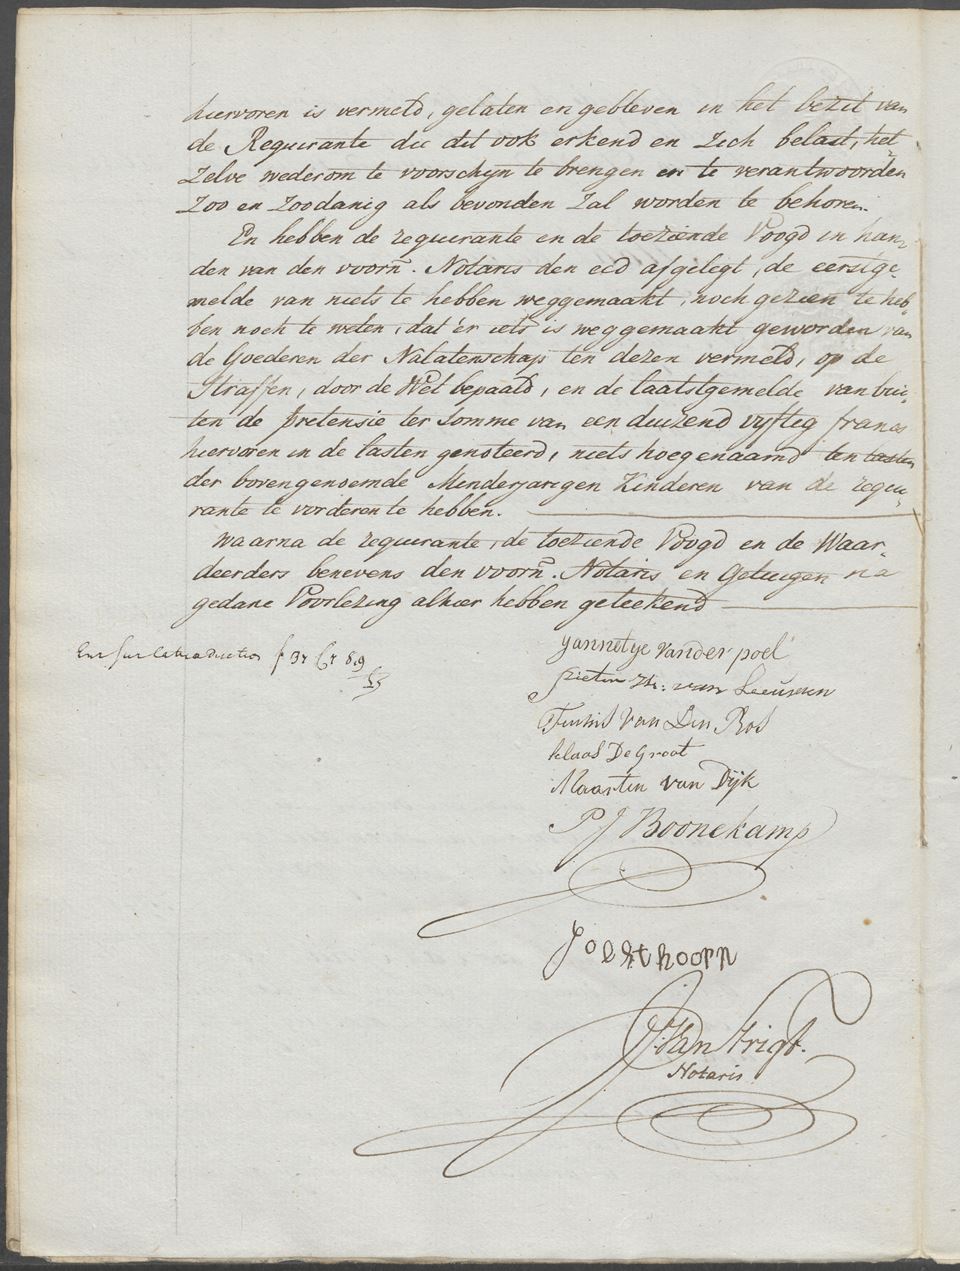 hiervoren is vermeld, gelaten en gebleven in het bezit van
de Requirante die dit ook erkend en zich belast, het
zelve wederom te voorschyn te brengen en te verantwoorden
zoo en zoodanig als bevonden zal worden te behoren.
En hebben de requirante en de toeziende Voogd in han„
den van den voorn. Notaris den eed afgelegt, de eerstge„
melde van niets te hebben weggemaakt, noch gezien te heb„
ben noch te weten, dat er iets is weggemaakt geworden van
de Goederen der Nalatenschap ten dezen vermeld, op de
Straffen, door de Wet bepaald, en de laatstgemelde van bui„
ten de pretensie ter somme van een duizend vyftig francs
hiervoren in de lasten genoteerd, niets hoegenaamd ten lasten
der bovengenoemde Minderjarigen Kinderen van de requi„
rante te vorderen te hebben.
Waarna de requirante, de toeziende Voogd en de Waar„
deerders benevens den voorn. Notaris en Getuigen na
gedane Voorlezing alhier hebben geteekend
Yannetye van der poel
pieter van Leeuwen
Teunis Van Den Bos
klaas De Groot
Maarten van Dijk
P J Boonekamp
J oosthoorn
J. Van Trigt.
Notaris